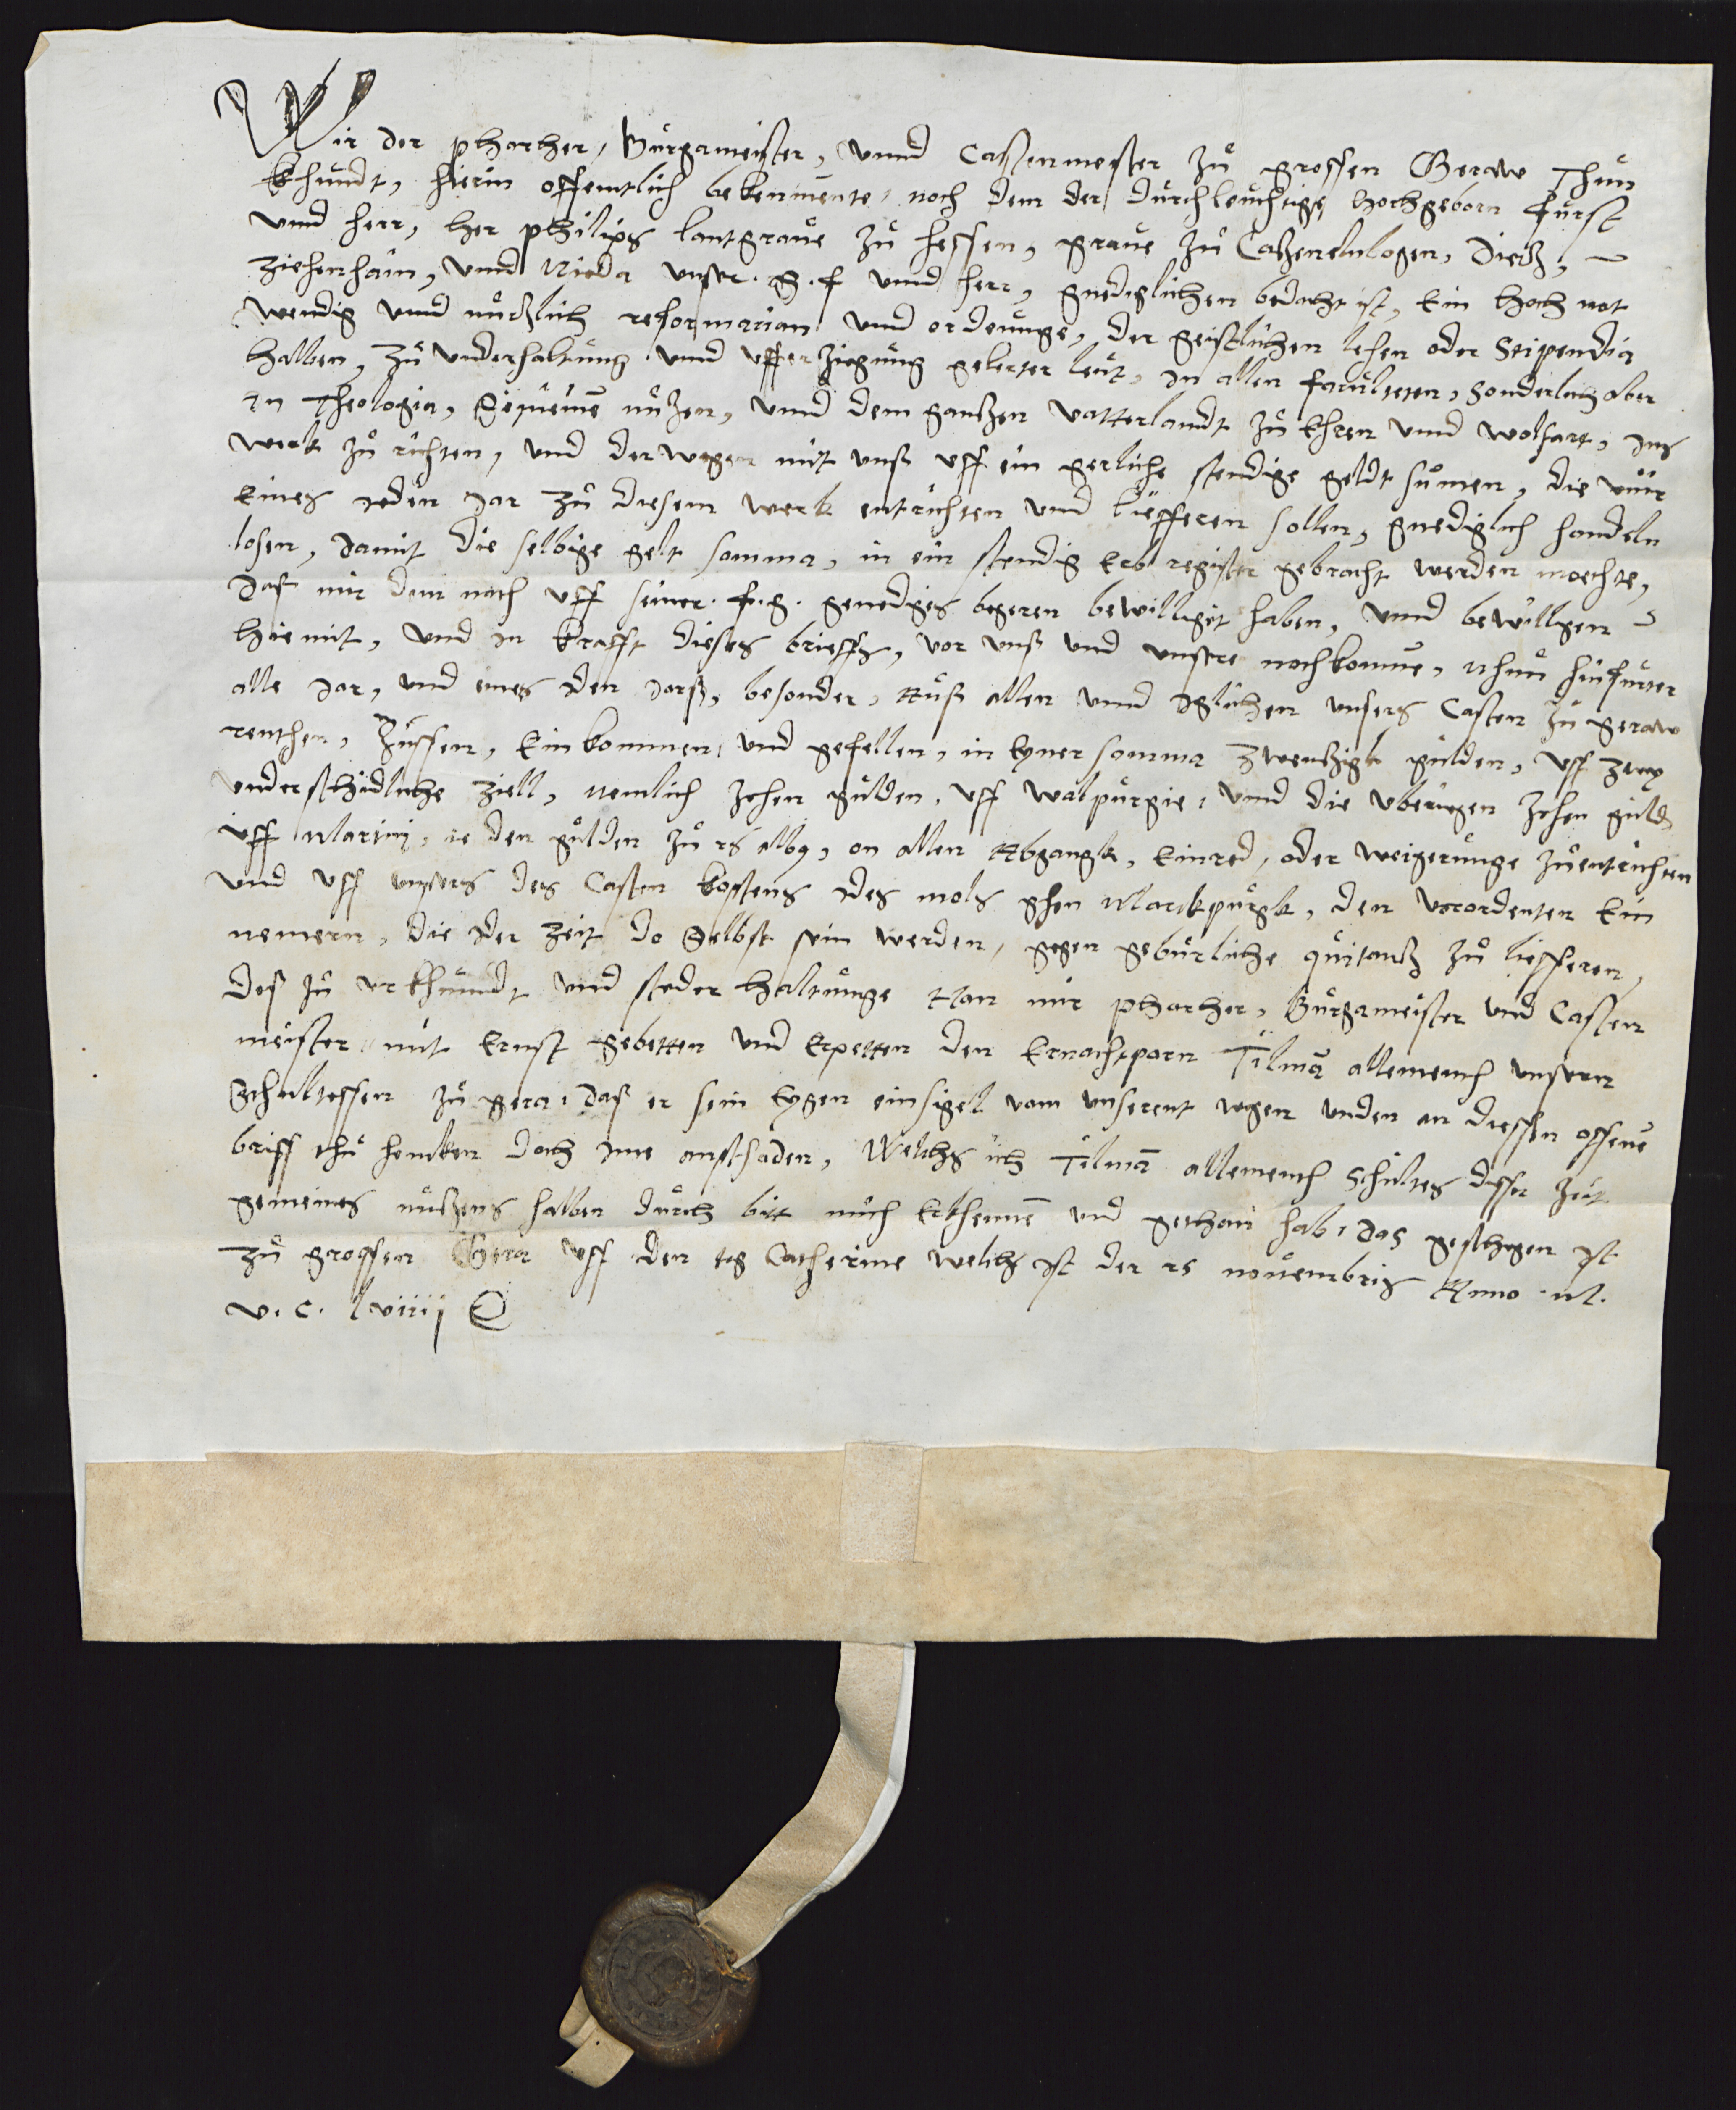 Wir der pharher, Burgameister, vnnd Castenmeister zu grossen Geraw Thun
Khundt, hierin offentlich bekennente, noch dem der durchleuchtige hochgeborn furst
vnnd herr, her philips lantgraue zu hessen, graue zu Catzenelnlogen, Dietz,
ziehenhain, vnnd Nieda vnser. g. f vnnd herr, gnediglichen bedacht ist, Ein hoch not
wendig vnnd nutzlich reformatian vnnd ordenunge, der geistlichen lehen oder Stipendia
halben, zu vnderhaltung vnnd vfferziegung gelerter leut, in allen faculteten, Sonderlich aber
in Theologia, Gemeinē nutzen, vnnd dem gantzen vatterlandt zu Ehren vnnd wolfart, ins
werk zu richten, vnnd derwegen mit vnß vff ein gerliche stendige geldt sumen, die wir
Eines jeden Jar zu diesem werk entrichten vnd liefferen sollen, gnediglich handeln
losen, damit die selbige gelt somma, in ein stendig Erb register gebracht werden moechte,
daß mir dem nach vff seiner. f. g. genediges begeren bewilliget haben, vnnd bewilligen
hiemit, vnnd in Krafft dieses brieffs, vor vnß vnd vnsere nochkomme, Nhun hinfurter
alle Jar, vnd eines den Jarß, besonder, Auß allen vnnd Iglichen vnsers Casten zu geraw
renthen, Zinssen, Einkommen, vnd gefellen, in Eyner somma zwentzigk gulden, vff zwey
vnderschidliche ziell, nemlich zehen gulden, vff walpurgie, vnnd die vberigen zehen guld
vff Martinj, ie den gulden zu xs albo, on allen Abgangk, Einred, oder weigerunge zuentrichten
vnnd vff vnsers des Casten kostens Ides mols ghen Marckpurgk, den verordenten Ein
nemern, die Ider zeit do Selbst sein werden, gegen geburliche quitantz zu liefferen,
deß zu vrkhundt vnnd steder haltunge Han mir pharher, Burgameister vnd Casten
meister mit Ernst gebetten vnd Erpetten den Ernachtparn Tilmā allemench vnsern
Schultessen zu gera, daß er sein Eygen einsigel vom vnserent wegen vnden an diessen offenē
briff thu hencken doch ime anschaden, Welichs ich Tilmā allemench Schultes disser zeit
gemeines nutzens halben durch bitt mich Erkhennē vnd gethan hab, das geschegen ist
zu grossen Gera vff den tag Catherine welchs ist der xs nouembris Anno M.
v. c. lviiij